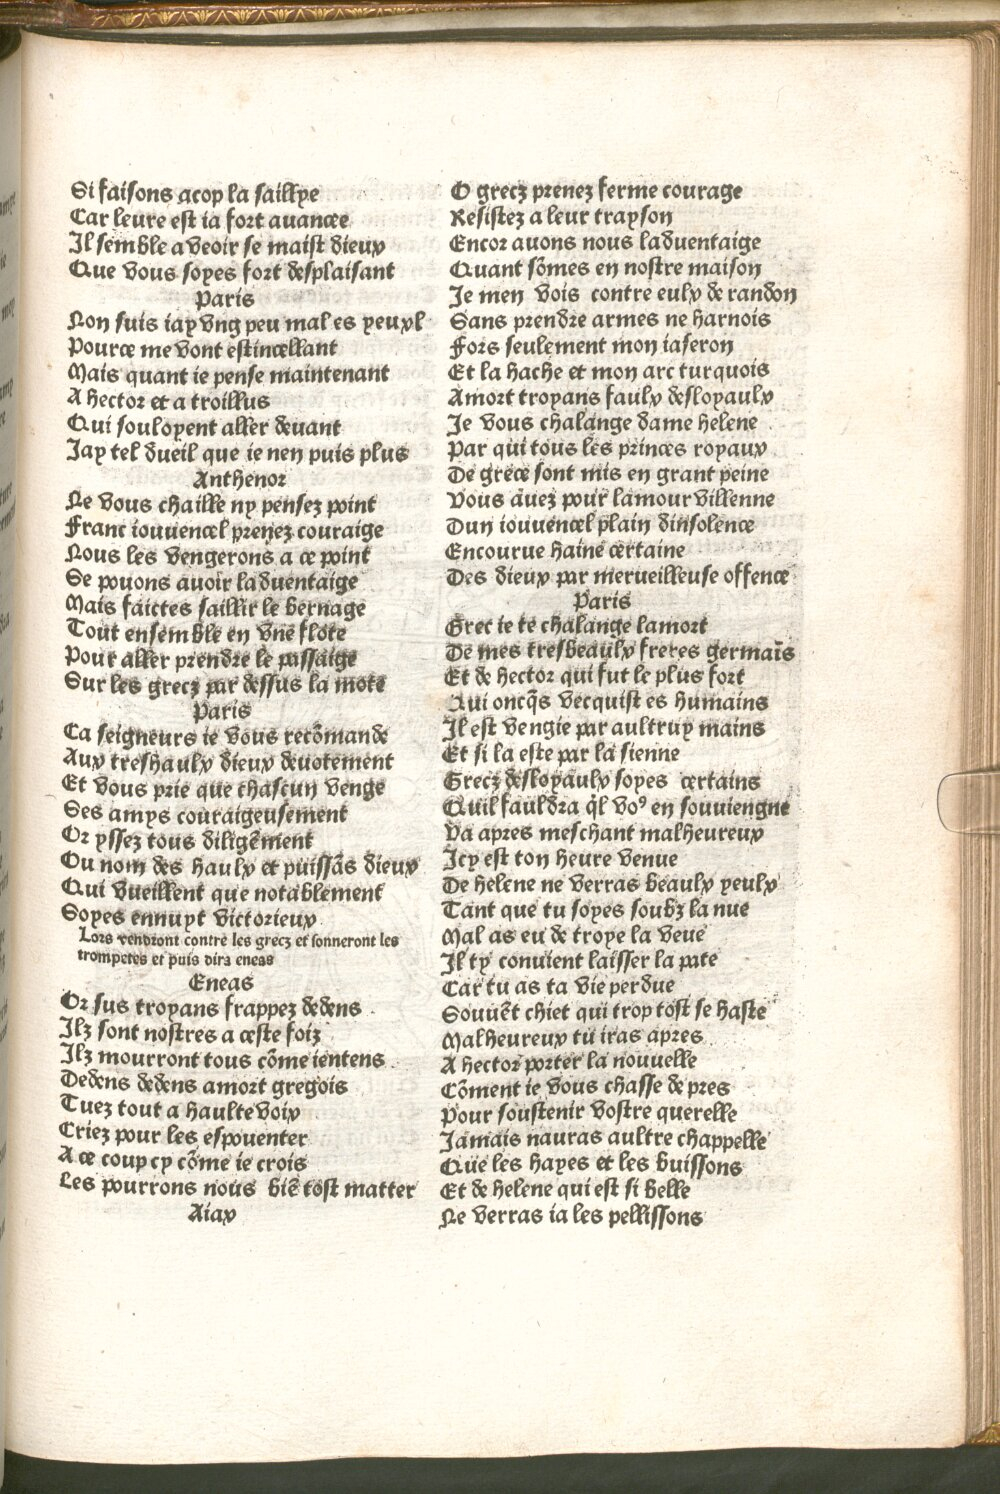 Si faisons acop la saillye
Car leure est ia fort auancee
Il semble a veoir se maist dieux
Que vous soyes fort desplaisant
Paris
Non suis iay vng peu mal es yeuxl
Pource me vont estincellant
Mais quant ie pense maintenant
A hector et a troillus
Qui souloyent aller deuant
Jay tel dueil que ie nen puis plus
Anthenor
Ne vous chaille ny pensez point
Franc iouuencel prenez couraige
Nous les vengerons a ce point
Se pouons auoir laduentaige
Mais faictes saillir le bernage
Tout ensemble en vne flote
Pour aller prendre le passaige
Sur les grecz par dessus la mote
Paris
Ca seigneurs ie vous recõmande
Aux treshaulx dieux deuotement
Et vous prie que chascun venge
Ses amys couraigeusement
Or yssez tous diligẽment
Ou nom des haulx et puissãs dieux
Qui vueillent que notablement
Soyes ennuyt victorieux
Lors vendront contre les grecz et sonneront les
trompetes et puis dira eneas
Eneas
Or sus troyans frappez dedens
Ilz sont nostres a ceste foiz
Ilz mourront tous cõme ientens
Dedens dedens amort gregois
Tuez tout a haulte voix
Criez pour les espouenter
A ce coup cy cõme ie crois
Les pourrons nous biẽ tost matter
Aiax
O grecz prenez ferme courage
Resistez a leur trayson
Encor auons nous laduentaige
Quant sõmes en nostre maison
Je men vois contre eulx de randon
Sans prendre armes ne harnois
Fors seulement mon iaseron
Et la hache et mon arc turquois
Amort troyans faulx desloyaulx
Je vous chalange dame helene
Par qui tous les princes royaux
De grece sont mis en grant peine
Vous auez pour lamour villenne
Dun iouuencel plain dinsolence
Encourue haine certaine
Des dieux par merueilleuse offence
Paris
Grec ie te chalange lamort
De mes tresbeaulx freres germaĩs
Et de hector qui fut le plus fort
Qui oncq̃s vecquist es humains
Il est vengie par aultruy mains
Et si la este par la sienne
Grecz desloyaulx soyes certains
Quil fauldra q̃l voꝰ en souuiengne
Va apres meschant malheureux
Icy est ton heure venue
De helene ne verras beaulx yeulx
Tant que tu soyes soubz la nue
Mal as eu de troye la veue
Il ty conuient laisser la pate
Car tu as ta vie perdue
Souuẽt chiet qui trop tost se haste
Malheureux tu iras apres
A hector porter la nouuelle
Cõment ie vous chasse de pres
Pour soustenir vostre querelle
Jamais nauras aultre chappelle
Que les hayes et les buissons
Et de helene qui est si belle
Ne verras ia les pellissons